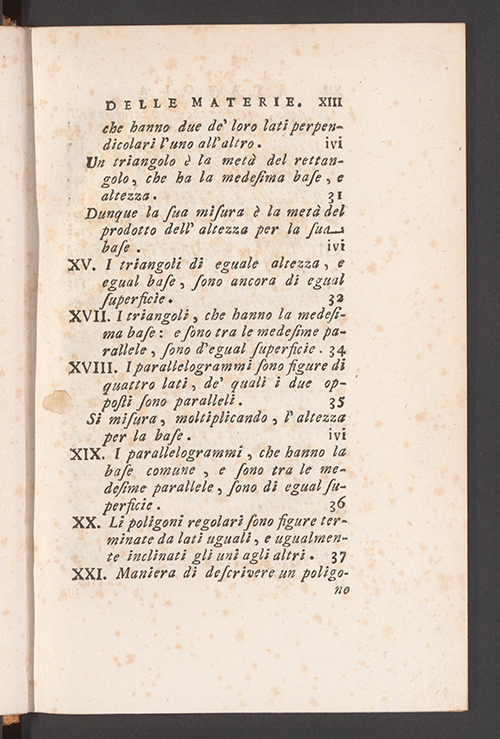 DELLE MATERIE. XIII
che hanno due de' loro lati perpen-
dicolari l'uno all'altro. ivi
Un triangolo è la metà del rettan-
golo, che ha la medeſima baſe, e
altezza. 31
Dunque la ſua miſura è la metà del
prodotto dell' altezza per la ſua
baſe. ivi
XV. I triangoli di eguale altezza, e
egual baſe, ſono ancora di egual
ſuperficie. 32
XVII. I triangoli, che hanno la medeſi-
ma baſe: e ſono tra le medeſime pa-
rallele, ſono d'egual ſuperficie. 34
XVIII. I parallelogrammi ſono figure di
quattro lati, de' quali i due op-
poſti ſono paralleli. 35
Si miſura, moltiplicando, l' altezza
per la baſe. ivi
XIX. I parallelogrammi, che hanno la
baſe comune, e ſono tra le me-
deſime parallele, ſono di egual ſu-
perficie. 36
XX. Li poligoni regolari ſono figure ter-
minate da lati uguali, e ugualmen-
te inclinati gli uni agli altri. 37
XXI. Maniera di deſcrivere un poligo-
no